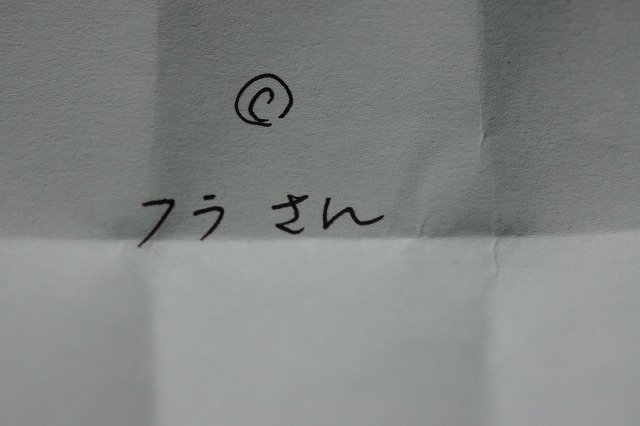 ©
フラ さん